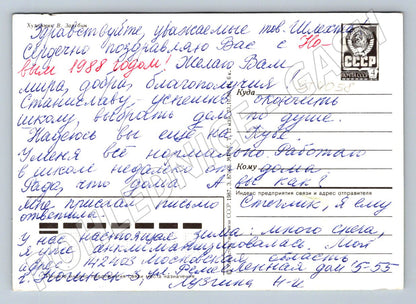 Художник В. Зарубин
Здравствуйте, уважаемые тов. Шлехт
Сердечно поздравляю Вас с Но-
вым 1988 годом! Желаю Вам
мира, добра, благополучия
Станиславу, успешно окончить
школу, выбрать дело по душе.
Надеюсь вы ещё на Кубе.
У меня всё нормально. Работаю
в школе недалеко от дома.
Рада, что дома. А вы как?
Мне прислал письмо Стеглик, я ему
ответила.
У нас настоящая зима: много снега,
я уже акклиматизировалась. Мой
адрес: 142403 московская область
г. Ногинск 3, ул. дом 5-55
н-и
СССР
Куда
Кому
Индекс предприятия связи и адрес отправителя